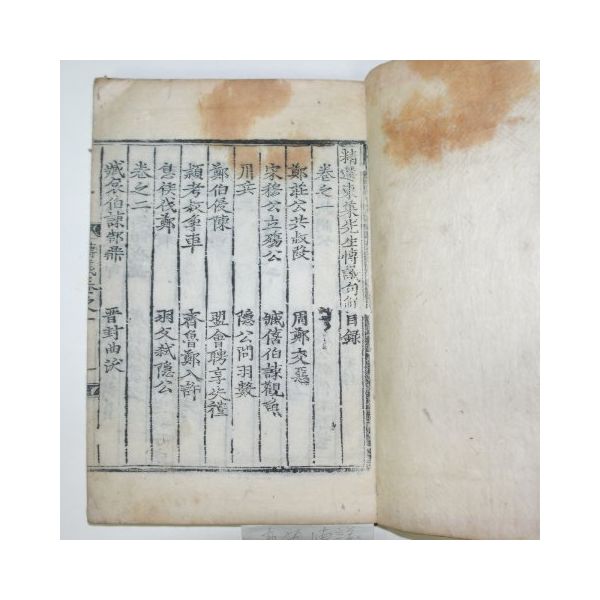 精選東萊先生博議句解目錄
卷之一
鄭莊公共叔段 周鄭交惡
宋穆公立殤公 臧僖伯諫觀魚
用兵 隱公問羽數
鄭伯侵陳 盟會聘享失禮
穎考叔爭車 齊魯鄭入許
息侯伐鄭 羽父弑隱公
卷之二
臧哀伯諫郜鼎 晉封曲沃